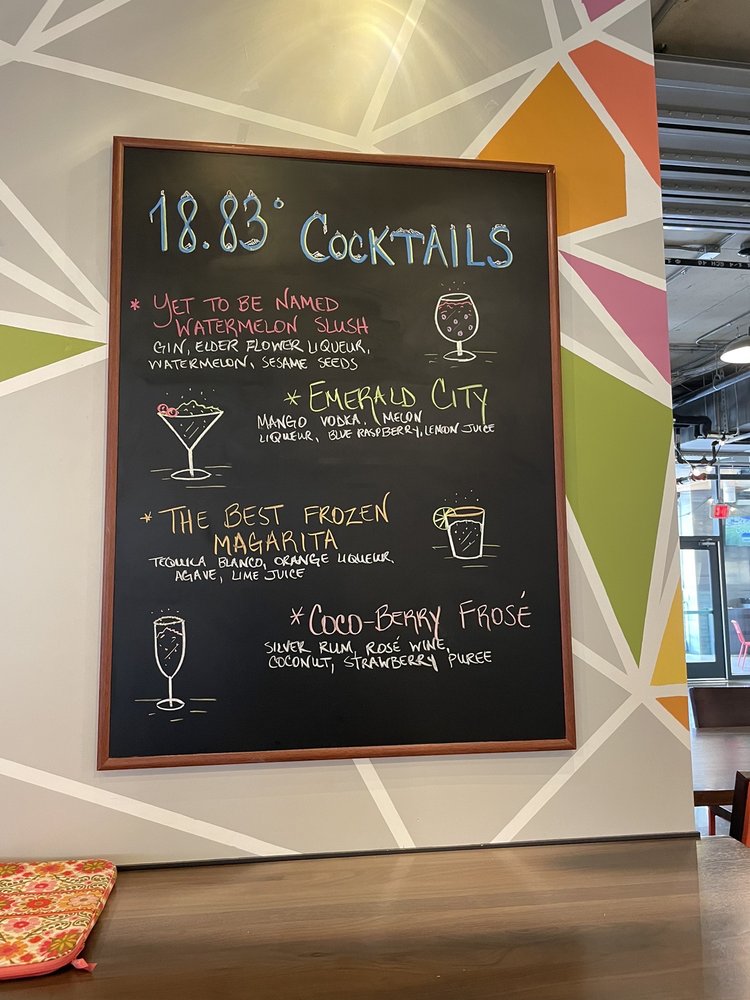 18.83° COCKTAILS
* YET TO BE NAMED
WATERMELON SLUSH
GIN, ELDER FLOWER LIQUEUR,
WATERMELON, SESAME SEEDS
* EMERALD CITY
MANGO VODKA, MELON
LIQUEUR, BLUE RASPBERRY, LEMON JUICE
* THE BEST FROZEN
MAGARITA
TEQUILA BLANCO, ORANGE LIQUEUR,
AGAVE, LIME JUICE
* COCO-BERRY FROSÉ
SILVER RUM, ROSÉ WINE,
COCONUT, STRAWBERRY PUREE